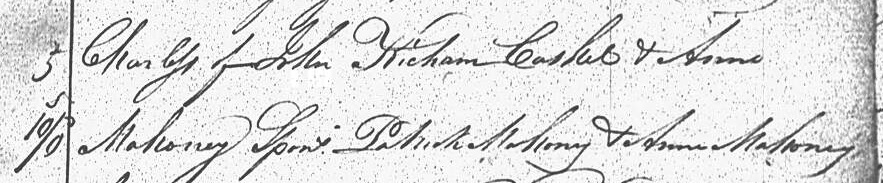 5 Charles of John Kickam Cashel & Anne
Mahoney Spons. Patrick Mahony & Anne Mahoney